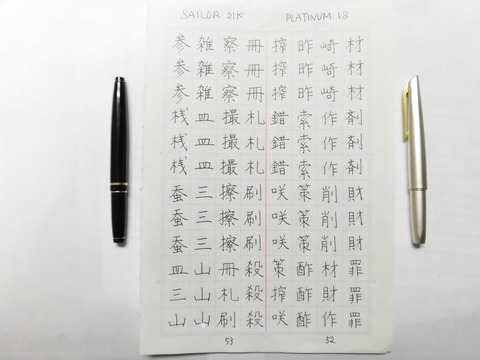 SAILOR 21K
PLATINUM 18
材材材剤剤剤財財財罪罪罪
崎崎崎作作作削削削材財作
昨昨昨索索索策策策酢酢酢
搾搾搾錯錯錯咲咲咲策搾咲
冊冊冊札札札刷刷刷殺殺殺
察察察撮撮撮擦擦擦冊札刷
雑雑雑皿皿皿三三三山山山
参参参桟桟桟蚕蚕蚕皿三山
52
53